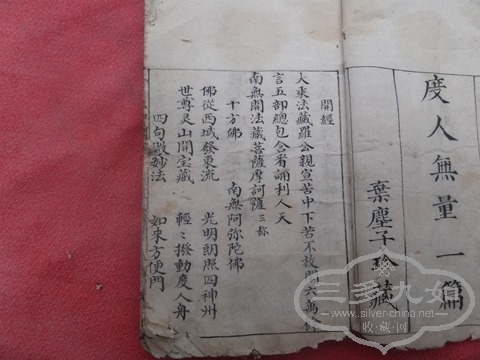 度人無量一篇
棄塵子珍藏
開經
大乘法藏羅公親宣苦中下苦不放閑六萬餘
言五部總包含看誦利人天
南無開法藏菩薩摩訶薩三称
十方佛 南無阿弥陀佛
佛從西域發東流 光明朗照四神州
世尊灵山開宝藏 輕〻撥動度人舟
四句微妙法 如來方便門
三多九如
www.silver-china.net
收藏网